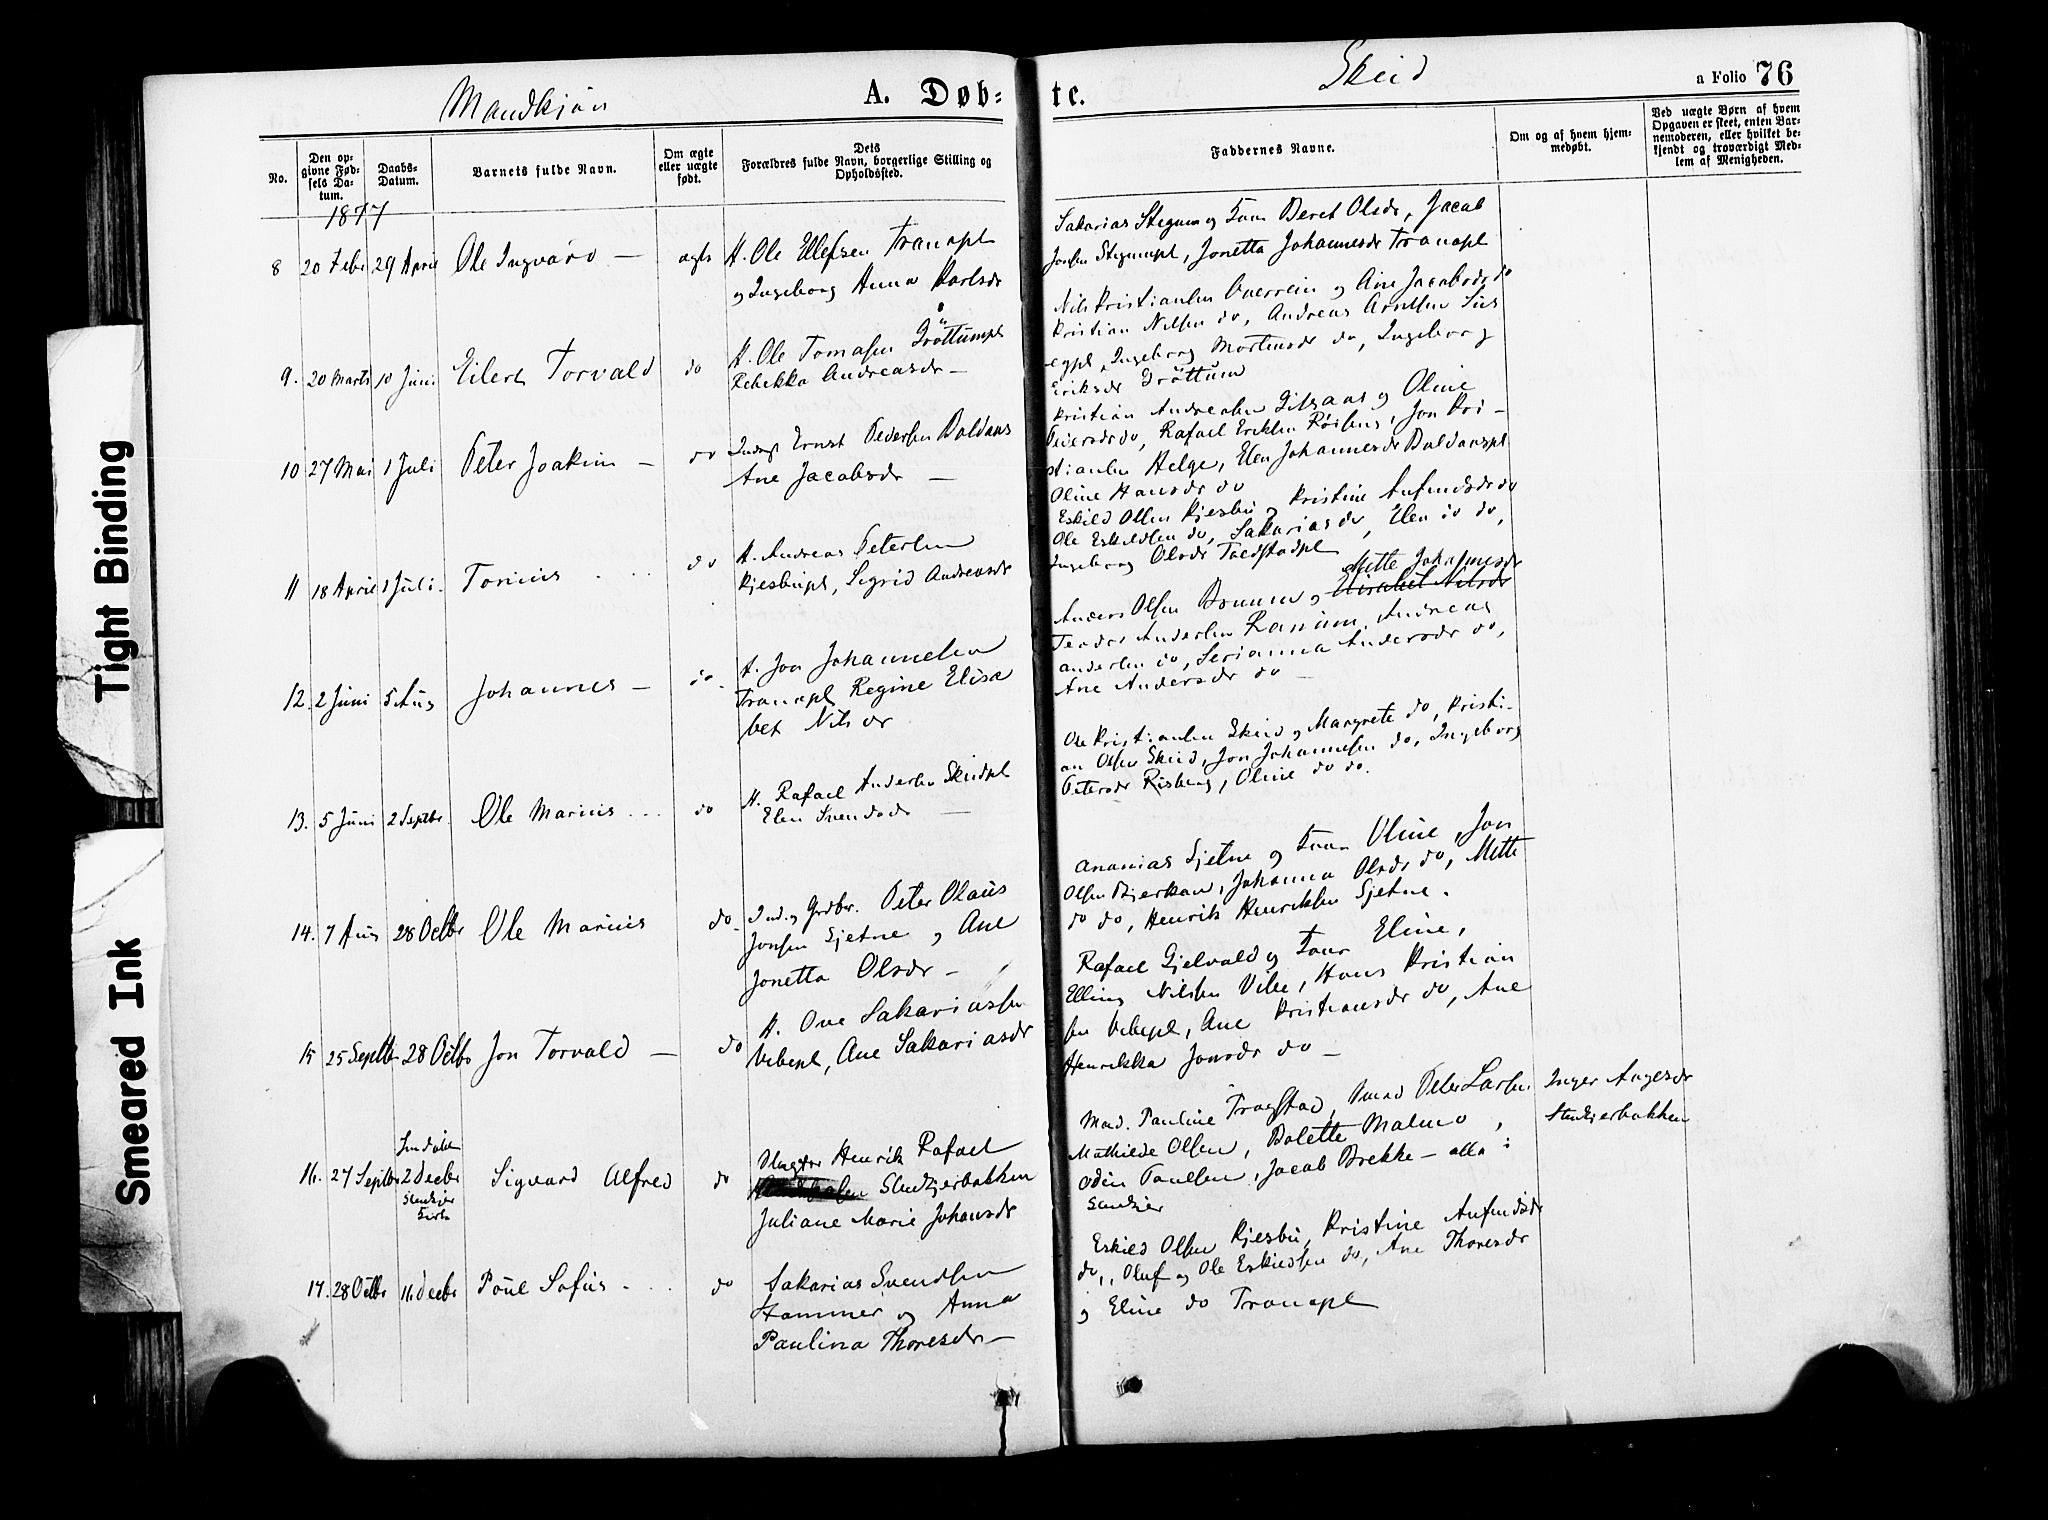 Mandkjøn
A. Døb-
te.
Skeid
a Folio 76
No.
Den op-
givne Fød-
sels Da-
tum.
Daabs-
Datum.
Barnets fulde Navn.
Om ægte
eller uægte
født.
Dets
Forældres fulde Navn, borgerlige Stilling og
Opholdssted.
Faddernes Navne.
Om og af hvem hjem-
medøbt.
Ved uægte Børn af hvem
Opgaven er skeet, enten Bar-
nemoderen, eller hvilket be-
kjendt og troværdigt Med-
lem af Menigheden.
1877
8 20 Febr 29 April Ole Ingvard — ægte
H. Ole Ellefsen Tranapl
og Ingeborg Anna Karlsdr
Sakarias Stegum og Kone Beret Olsdr, Jacob
Jonsen Stegumpl, Jonetta Johannesdr Tranapl
9. 20 Marts 10 Juni Eilert Torvald do
H. Ole Tomasen Grøttumpl
Rebekka Andreasdr —
Nils Kristiansen og Ane Jacobsdr do
Kristian Nilsen do, Andreas Arntsen
Ingeborg Mortensdr do, Ingeborg
Eriksdr Grøttum
10 27 Mai 1 Juli Peter Joakim — do
Ernst Pedersen Boldaas
Ane Jacobsdr —
Kristian Andreasen og Oline
Peversdr do, Rafael Eriksen, Jon Kri-
stiansen Helge, Elen Johannesdr
Oline Hansdr do
11 18 April 1 Juli. Tonius do
H. Andreas Petersen
Kjesbupl, Sigrid Andreasdr
Eskild Olsen Kjesbu og Kristine Anfindsdr do
Ole Eskildsen do, Sakarias do, Elen do do,
Ingeborg Olsdr
12. 2 Juni 5 Aug Johannes — do.
H. Jon Johannesen
Tranapl Regine Elisa
bet Nilsdr
Mette Johannesdr
Anders Olsen og Elisabet Nilsdr
Andersen Ranum, Andreas
Andersen do, Serianna Andersdr do,
Ane Andersdr do —
13. 5 Juni 2 Septbr. Ole Marius do
H. Rafael Andersen Skeidpl
Elen Svendsdr —
Ole Kristiansen Skeid og Margrete do, Kristi-
an Olsen Skeid, Jon Johannesen do, Ingeborg
Petersdr Risberg, Oline do do.
14. 7 Aug 28 Octbr Ole Marius do.
Ind. og Grdbr. Peter Olaus
Jonsen Gjetne og Ane
Jonetta Olsdr —
Ananias Gjetne og Kone Oline, Jon
Olsen Bjerkan, Johanna Olsdr do, Mette
do do, Henrik Henriksen Gjetne.
15 25 Septbr 28 Octbr Jon Torvald — do
H. Ove Sakariassen
Vibepl, Ane Sakariasdr
Rafael Gjelvold og Kone Eline,
Elling Nilsen Vibe, Hans Kristian
sen Vibepl, Ane Kristiansdr do, Ane
Henrikka Jonsdr do —
16. 27 Septbr 2 Decbr Stenkjer Kirke Sigvard Alfred do
Henrik Rafael
Stenkjerbakken
Juliane Marie Johansdr
Mad. Pauline Tragstad, Peter Larsen
Mathilde Olsen, Bolette Malmo,
Odin Paulsen, Jacob Brekke — alle i
Stenkjer
Inger Aagesdr
Stenkjerbakken
17. 28 Octbr 16 Decbr Poul Sofus do
Sakarias Svendsen
Hammer og Anna
Paulina Thoresdr —
Eskild Olsen Kjesbu, Kristine Anfindsdr
do, Oluf og Ole Eskildsen do, Ane Thoresdr
og Eline do Tranapl
Tight Binding
Smeared Ink